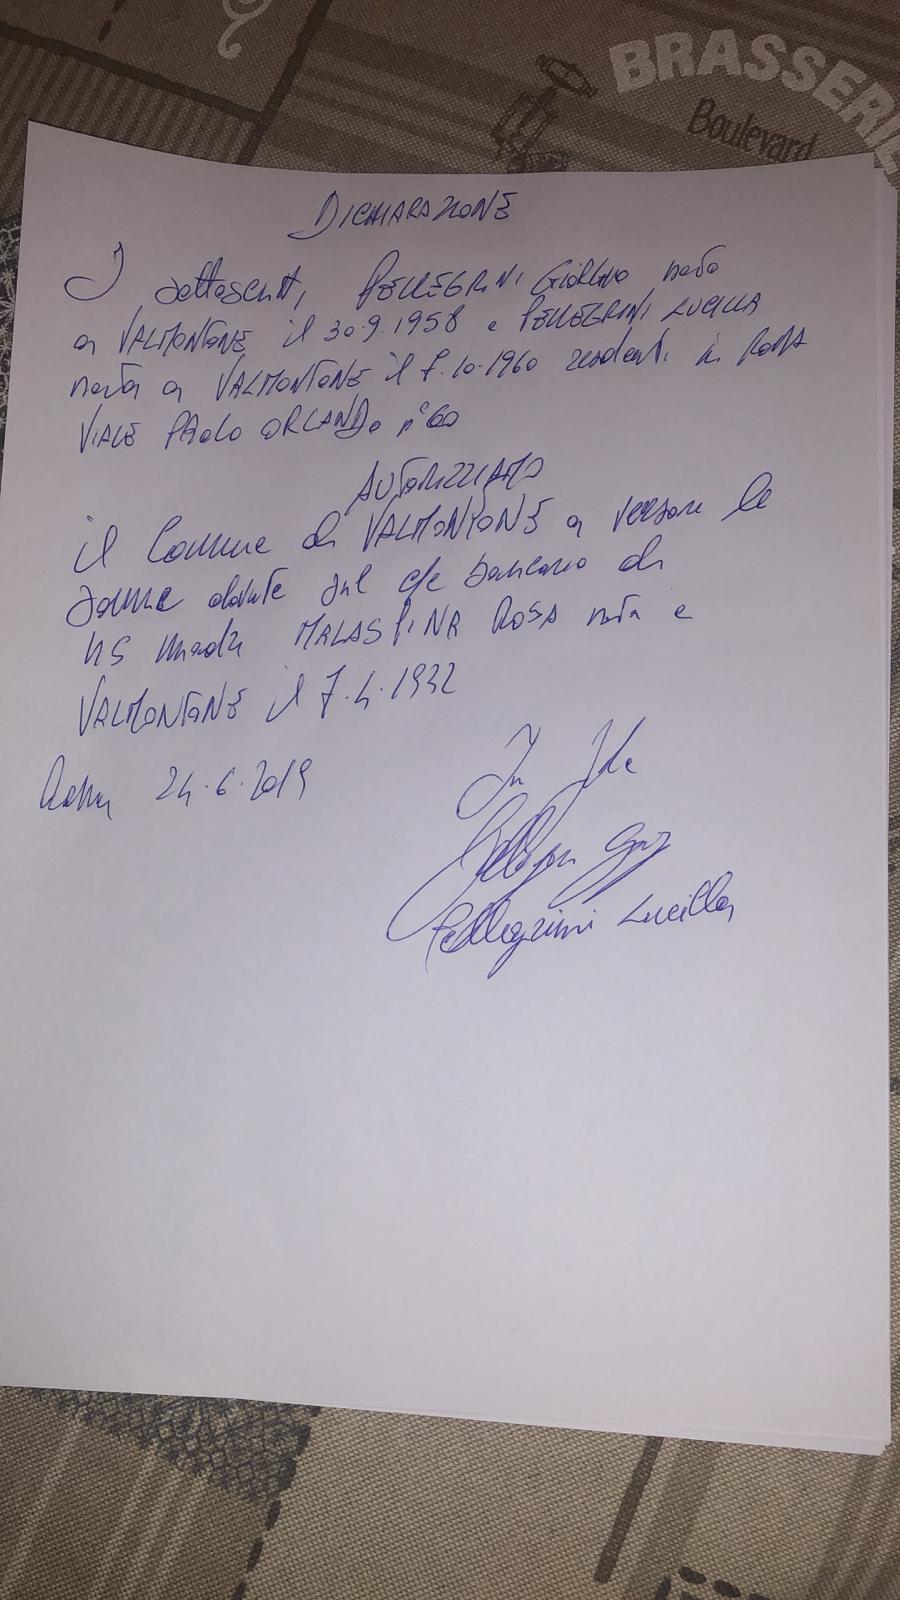 BRASSERIE
Boulevard
DICHIARAZIONE
I sottoscritti, PELLEGRINI GIORGIO nato
a VALMONTONE il 30.9.1958 e PELLEGRINI LUCILLA
nata a VALMONTONE il 7.10.1960 residenti in ROMA
VIALE PAOLO ORLANDO n°60
AUTORIZZIAMO
il Comune di VALMONTONE a versare le
somme dovute sul c/c bancario di
NS madre MALASPINA ROSA nata a
VALMONTONE il 7.4.1932
Roma 24.6.2019
In fede
Pellegrini
Pellegrini Lucilla